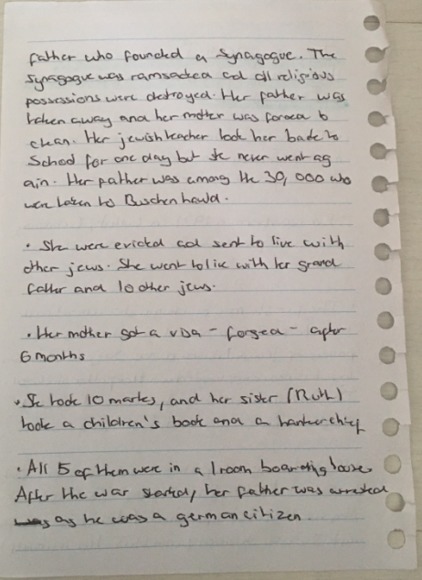 father who founded a Synagogue. The
synagogue was ramsacked and all religious
possessions were destroyed. Her father was
taken away and her mother was forced to
clean. Her jewish teacher took her back to
School for one day but she never went ag
ain. Her father was among the 30,000 who
were taken to Buschenhauld.
• She were evicted and sent to live with
other jews. She went to live with her grand
father and 10 other jews.
• Her mother got a visa - forged - after
6 months
• She took 10 marks, and her sister (Ruth)
took a children's book and a hankerchief
• All 5 of them were in a 1 room boarding house.
After the war started, her father was arrested
as he was a german citizen.